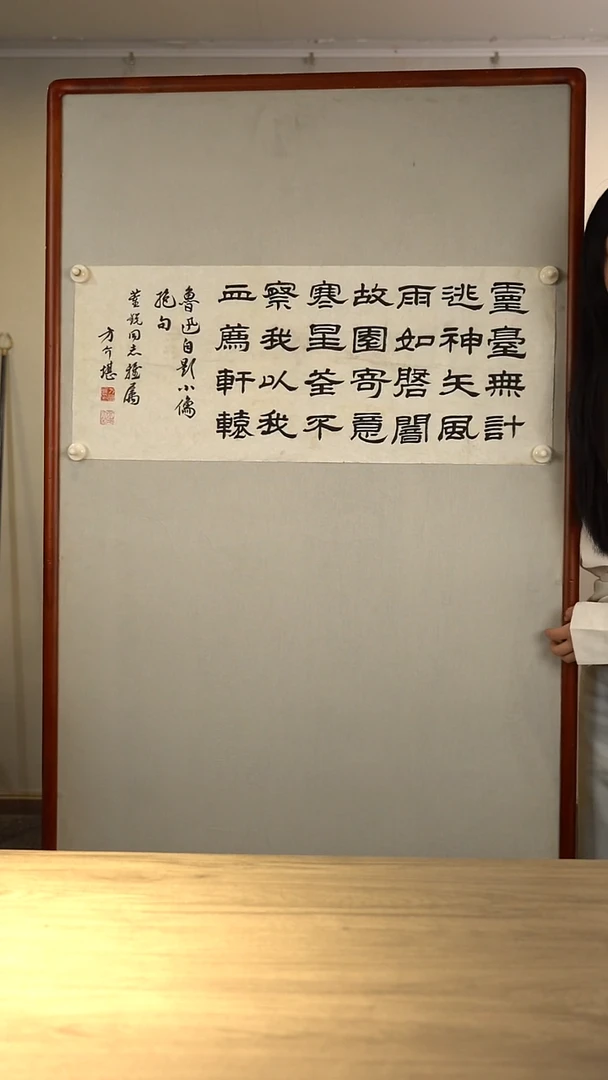 靈臺無計
逃神矢風
雨如磐闇
故園寄意
寒星荃不
察我以我
血薦軒轅
魯迅自題小像
絕句
同志雅屬
方介堪